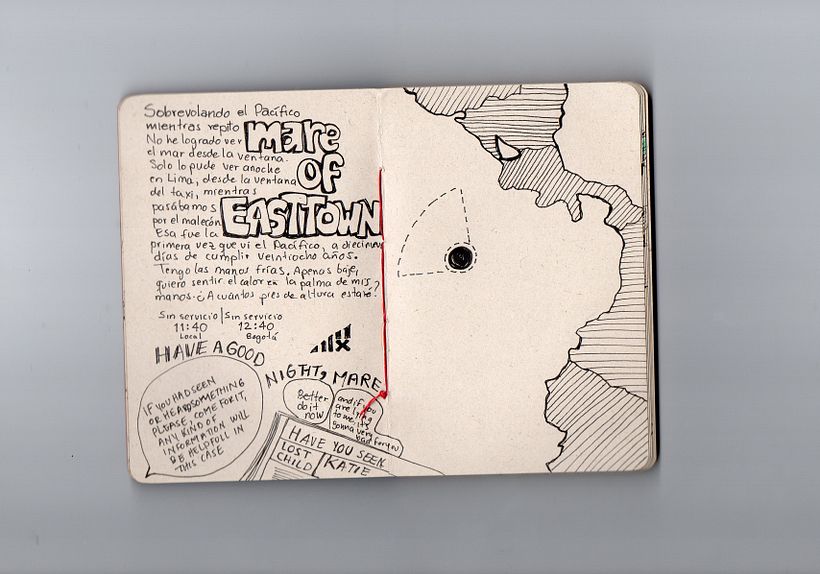 Sobrevolando el Pacífico
mientras repito
mare
No he logrado ver
el mar desde la ventana.
OF
Solo lo pude ver anoche
en Lima, desde la ventana
del taxi, mientras
EASTTOWN
pasábamos
por el malecón
Esa fue la
primera vez que vi el Pacífico, a diecinueve
días de cumplir veintiocho años.
Tengo las manos frías. Apenas baje,
quiero sentir el calor en la palma de mis
manos. ¿A cuántos pies de altura estaré?
Sin servicio | Sin servicio
11:40 12:40
Local Bogotá
HAVE A GOOD
NIGHT, MARE
IF YOU HAD SEEN
OR HEARD SOMETHING
PLEASE, COME FOR IT,
ANY KIND OF
INFORMATION WILL
BE HELPFULL IN
THIS CASE
Better
do it
now
and if you
are lying
to me, it's
gonna very
bad for you
HAVE YOU SEEN
LOST
CHILD
KATIE